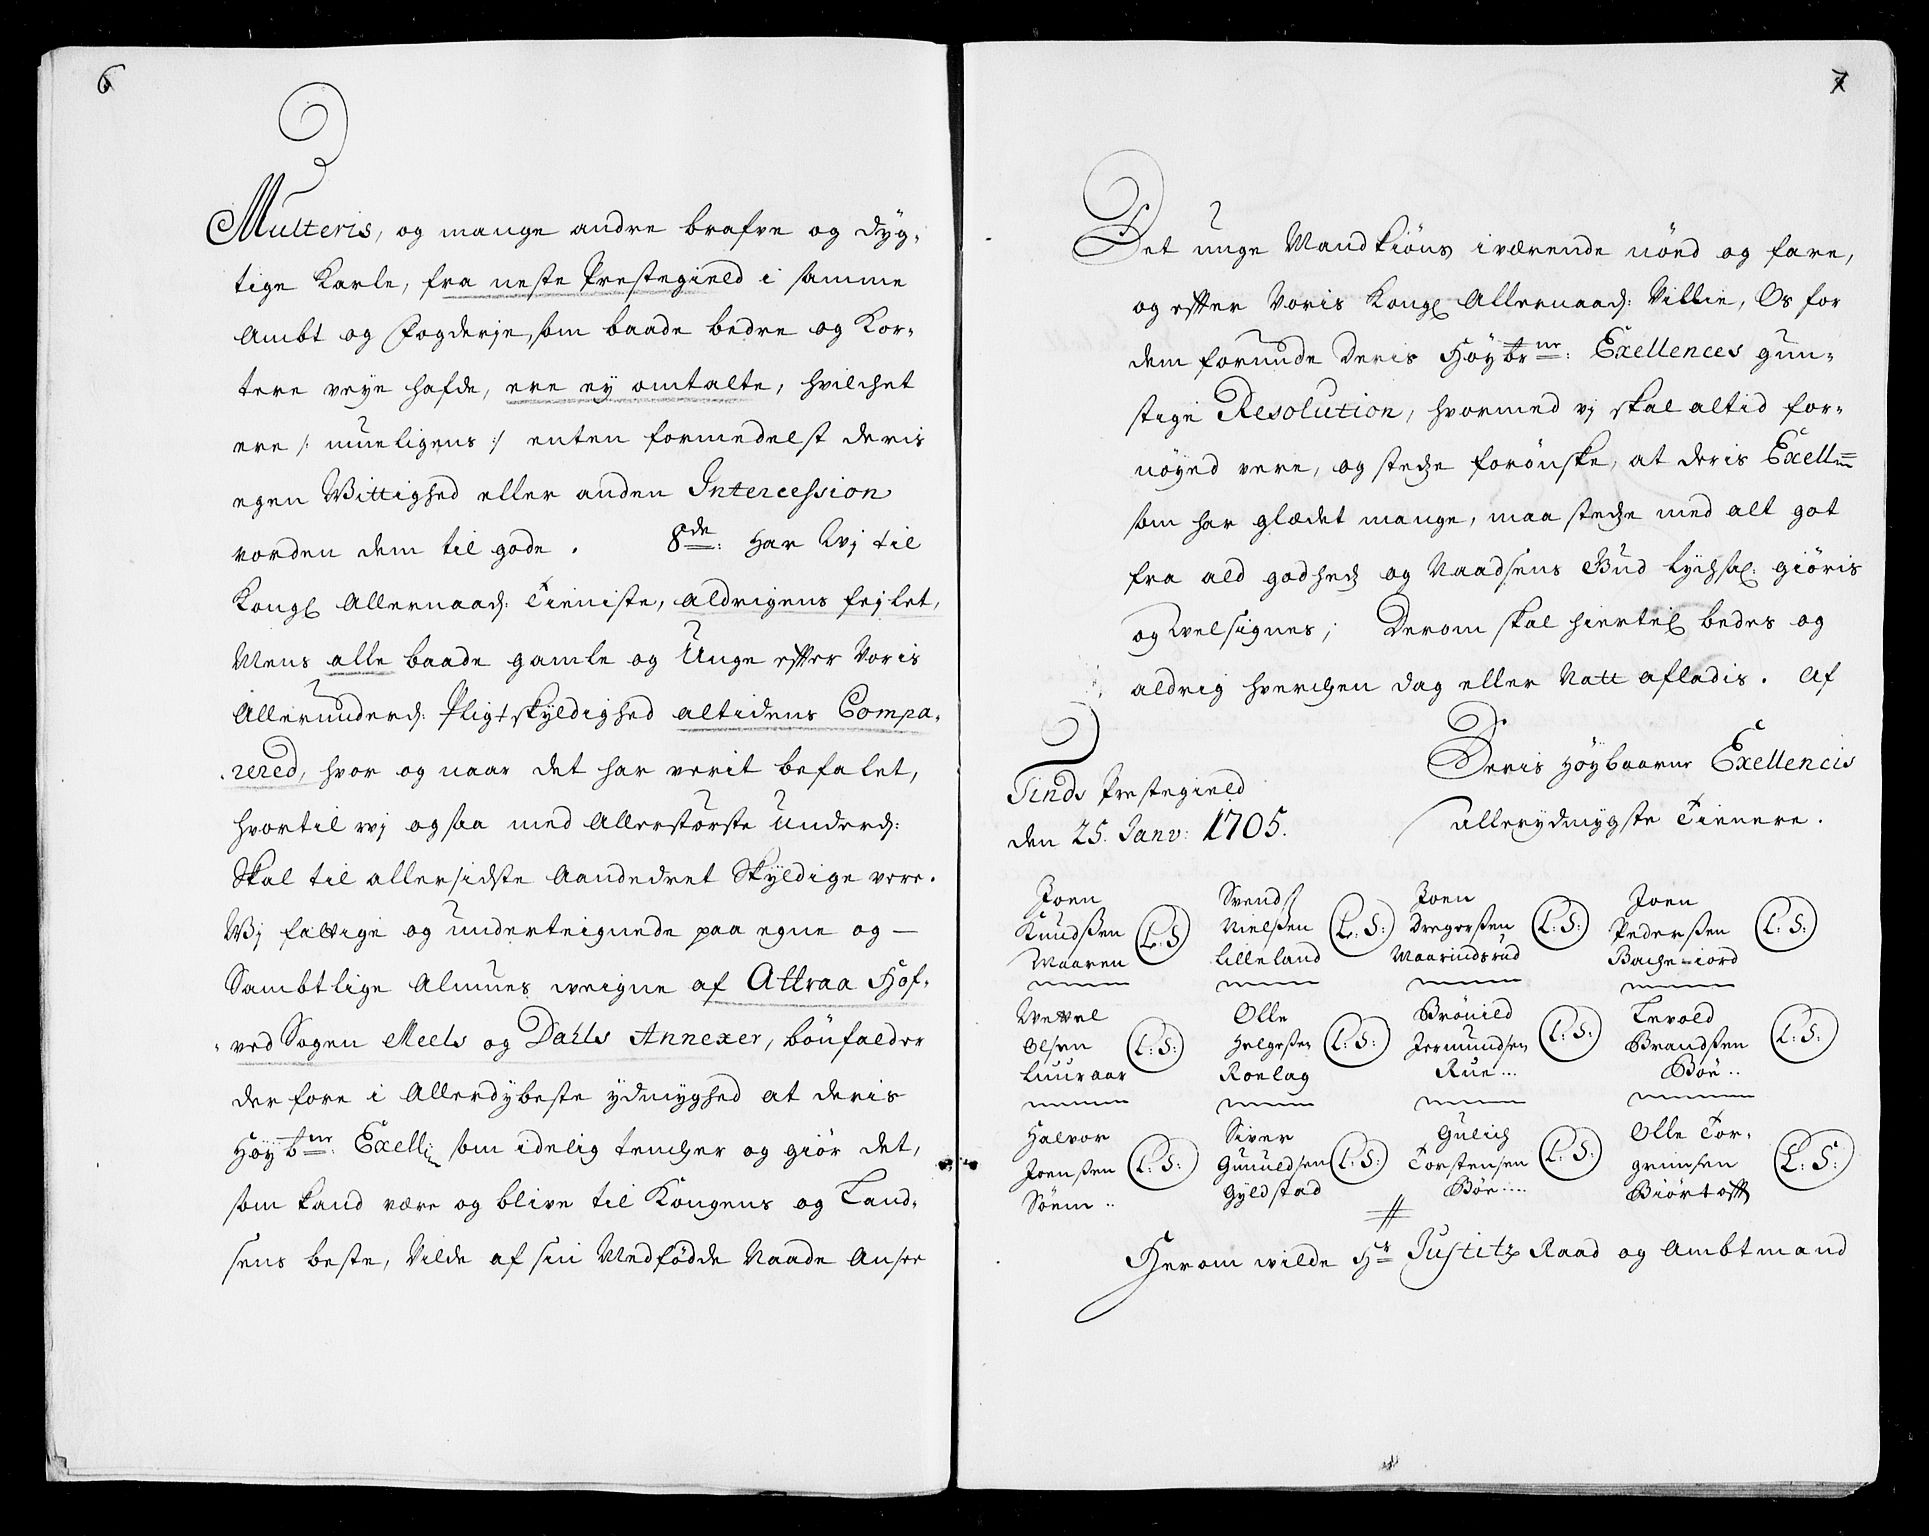 6
Multeris, og mange andre brafve og dyg-
tige Karle, fra neste Prestegield i samme
Ambt og Fogderje, som baade bedre og Kor-
tere veye hafde, ere ey omtalte, hvilchet
ere /: mueligens :/ enten formedelst deris
egen Wittighed eller anden Intercession
vorden dem til gode. 8de: Har Wj til
Kongl Allernaad: Tieniste, aldrigens fejlet,
Mens alle baade gamle og Unge effter Voris
Allerunderd: Pligtskyldighed altidens Compa-
rered, hvor og naar det har verit befalet,
hvortil wj ogsaa med Allerstörste Underd:
Skal til allersidste Aandedret Skyldige vere.
Wj fattige og underteignede paa egne og
Sambtlige Almues weigne af Attraa Hof-
ved Sogen Meels og Dahls Annexer, bönfalder
der fore i Allerdybeste ydmyghed at deris
Höybnr: Exell: som idelig tencher og giör det,
som kand være og blive til Kongens og Land-
sens beste, Vilde af sin Medfödde Naade Ansee
7
Det unge Mandkiöns iværende nöed og fare,
og effter Voris Kongl Allernaad: Villie, Os for
dem forunde Deris Höybrnr: Exellences gun-
stige Resolution, hvormed vj skal altid for-
nöyed vere, og stedze forönske, at deris Exell
som har glædet mange, maa stedze med alt got
fra ald godhed og Naadsens Gud lychsal: giöris
og Welsignes; Derom skal hiertel bedes og
aldrig hverchen dag eller Natt afladis. Af
Deris Höybaarne Exellencis
allerydmygste Tienere.
Tinds Prestegield
den 25. Janv: 1705.
Joen Knudssen Maaren L. S
Svend Nielssen Lilleland L. S:
Joen Dregerssen Maarindsrud L: S:
Joen Pederssen Bache-iord L: S:
Wettel Olsen Luuraar L: S:
Olle Helgessen Roelag L: S:
Brönild Jermundsen Rue L: S:
Levold Brandssen Böe L: S:
Halvor Joenssen Söem L: S:
Siver Gunuldsen Gyldstad L: S:
Gulich Torstensen Böe L: S:
Olle Tor-
grimsen Biörtofft L: S:
Herom wilde Hr Justitz Raad og Ambtmand